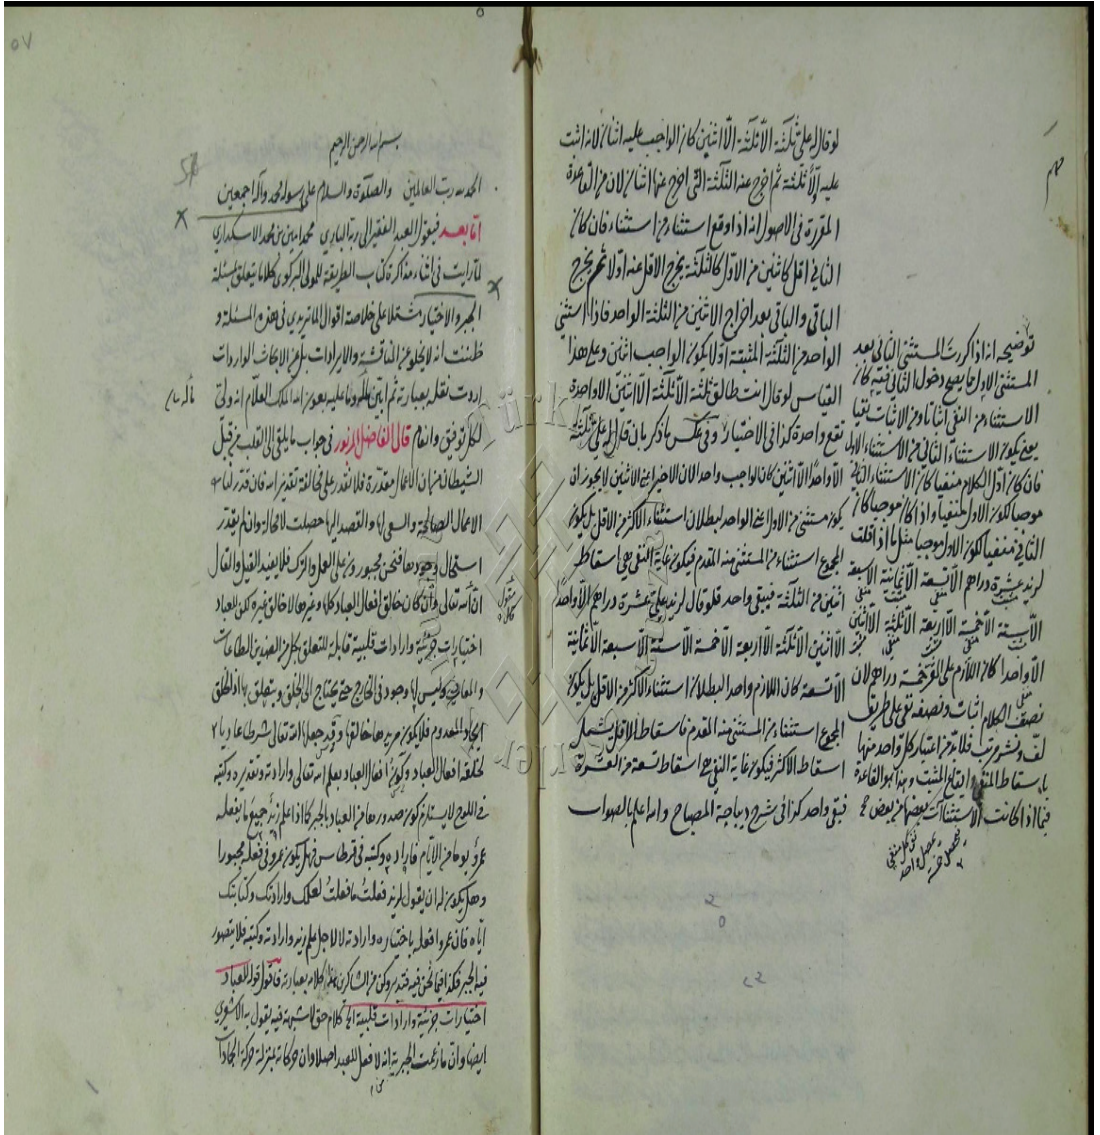 لو قال له على ثلثة الا ثلثة الا اثنين كان الواجب عليه اثنان لانه اثبت
عليه اولا ثلثة ثم اخرج عنه الثلثة التى اخرج عنها اثنان لان من القاعدة
المقررة فى الاصول انه اذا وقع استثناء من استثناء فان كان
الثانى اقل كاثنين من الاول كالثلثة يخرج الاقل عنه اولا ثم يخرج
الباقى والباقى بعد اخراج الاثنين من الثلثة الواحد فاذا استثنى
الواحد من الثلثة المثبتة اولا يكون الواجب اثنين وعلى هذا
القياس لو قال انت طالق ثلثة الا ثلثة الا اثنين الا واحدة
تقع واحدة كذا فى الاختيار وفى عكس ما ذكر بان قال له على ثلثة
الا واحدا الا اثنين كان الواجب واحد الان الاخير اعنى الاثنين لا يجوز ان
يكون مستثنى من الاول اعنى الواحد لبطلان استثناء الاكثر من الاقل بل يكون
المجموع استثناء من المستثنى منه المقدم فيكون غاية النفى هى اسقاط
اثنين من الثلثة فيبقى واحد فلو قال لزيد على عشرة دراهم الا واحدا
الا اثنين الا ثلثة الا اربعة الا خمسة الا ستة الا سبعة الا ثمانية
الا تسعة كان اللازم واحدا لبطلان استثناء الاكثر من الاقل بل يكون
المجموع استثناء من المستثنى منه المقدم فاسقاط الاقل يشمل
اسقاط الاكثر فيكون غاية النفى هى اسقاط تسعة من العشرة
فبقى واحد كذا فى شرح ديباجة المصباح والله اعلم بالصواب
توضيحه انه اذا كررت المستثنى الثانى بعد
المستثنى الاول مما يصح دخول الثانى فيه كان
الاستثناء من النفى اثباتا ومن الاثبات نفيا
يعنى يكون الاستثناء الثانى من الاستثناء الاول
فان كان اول الكلام منفيا كان الاستثناء الثانى
موجبا لكون الاول منفيا واذا كان موجبا كان
الثانى منفيا لكون الاول موجبا مثل ما اذا قلت
لزيد عشرة دراهم الا تسعة الا ثمانية الا سبعة
الا ستة الا خمسة الا اربعة الا ثلثة الا اثنين
الا واحدا كان اللازم على المقر خمسة دراهم لان
نصف الكلام اثبات ونصفه نفى على طريق
لف ونشر مرتب فلابد من اعتبار كل واحد منها
باسقاط المنفى وايقاع المثبت وهذا هو القاعدة
فيما اذا كانت الاستثناآت بعضها من بعض
بسم الله الرحمن الرحيم
الحمد لله رب العالمين والصلوة والسلام على رسوله محمد وآله اجمعين
اما بعد فيقول العبد الفقير الى ربه البارى محمد امين بن محمد الاسكدارى
لما رايت فى اثناء مذاكرة كتاب الطريقة للمولى البركوى كلاما يتعلق بمسئلة
الجبر والاختيار مشتملا على خلاصة اقوال الماتريدى فى هذه المسئلة و
ظننت انه لا يخلو عن المناقشة والايرادات بل عن الابحاث الواردات
اردت نقله بعبارته ثم اتبين ما له وما عليه بعون الله الملك العلام انه ولى
لكل توفيق وانعام قال الفاضل المزبور فى جواب ما يلقى الى القلب من قبل
الشيطان من ان الاعمال مقدرة فلا نقدر على مخالفة تقدير الله فان قدر لنا
الاعمال الصالحة والسعى لها والقصد اليها حصلت لا محالة وان لم يقدر
استحال وجودها فنحن مجبورون على العمل والترك فلا يفيد القيل والقال
ان الله تعالى وان كان خالق افعال العباد كلها وغيرها لا خالق غيره لكن للعباد
اختيارات جزئية وارادات قلبية قابلة للتعلق بكل من الضدين الطاعات
والمعاصى وليس لها وجود فى الخارج حتى يحتاج الى الخلق ويتعلق بها اذ الخلق
ايجاد المعدوم فلا يكون مريدها خالقها وقد جعلها الله تعالى شرطا عاديا
لخلقه افعال العباد وكون افعال العباد بعلم الله تعالى وارادته وتقديره وكتبه
فى اللوح لا يستلزم كون صدورها من العباد بالجبر كما اذا علم زيد جميع ما يفعله
عمرو يوما من الايام فاراده وكتبه فى قرطاس فهل يكون عمرو فى فعله مجبورا
وهل يكون له ان يقول لزيد فعلت ما فعلت لعلمك وارادتك وكتابتك
اياه فان عمروا فعله باختياره وارادته لا لاجل علم زيد وارادته وكتبه فلا يتصور
فيه الجبر فكذا فيما نحن فيه فتدبر وكن من الشاكرين هذا كلامه بعبارته فاقول قوله للعباد
اختيارات جزئية وارادات قلبية الخ كلام حق لا شبهة فيه يقول به الاشعرى
ايضا وان ما زعمت الجبرية انه لا فعل للعبد اصلا وان حركاته بمنزلة حركة الجمادات